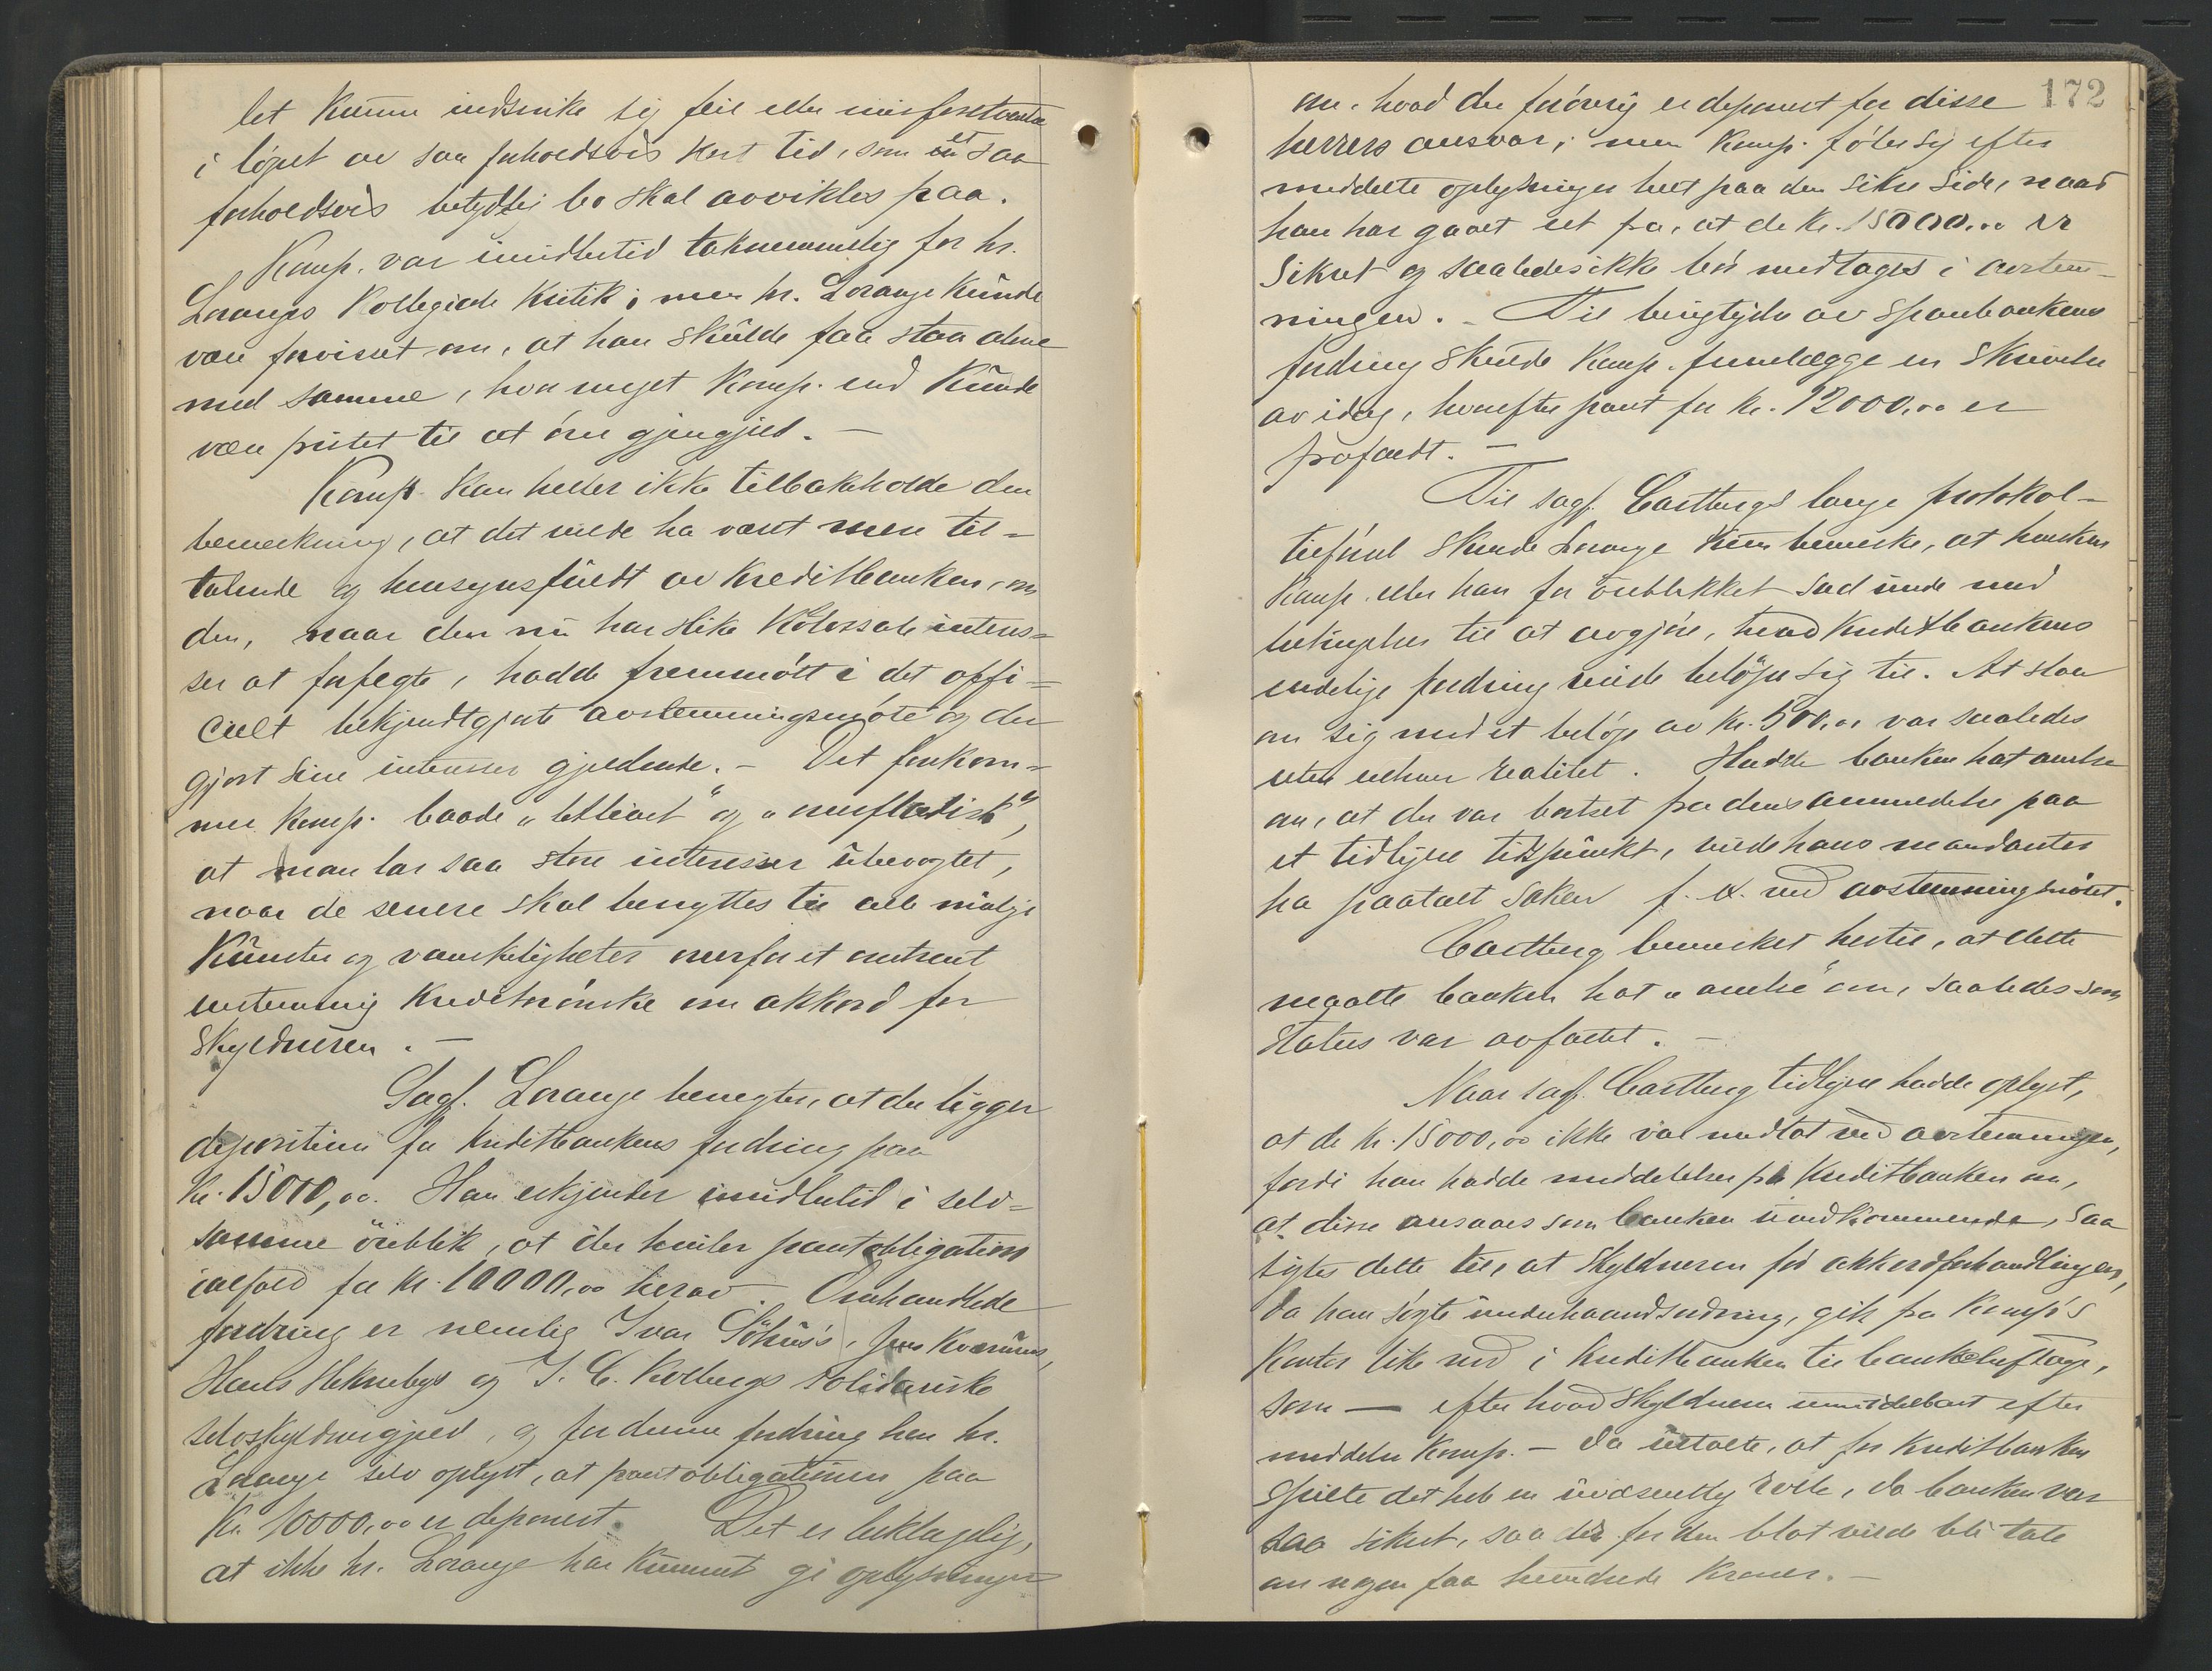 let kunne indsnike sig feil eller misforstaaelse
i løpet av saa forholdsvis kort tid, som et saa
forholdsvis betydelig bo skal avvikles paa.
Kamp. var imidlertid taknemmelig for hr.
Loranges kollegiale kritik; men hr. Lorange kunde
være forvisset om, at han skulde faa staa alene
med samme, hvor meget Kamp. end kunde
være fristet til at øve gjengjeld. —
Kamp. kan heller ikke tilbakeholde den
bemerkning, at det vilde ha været mere til-
talende og hensynsfuldt av Kreditbanken, om
den, naar den nu har slike kolossale interes-
ser at forfegte, hadde fremmøtt i det offi-
cielt bekjendtgjorte avstemningsmøte og der
gjort sine interesser gjeldende. — Det forekom-
mer Kamp. baade
at man lar saa store interesser ubevogtet,
naar de senere skal benyttes til alle mulige
kunster og vanskeligheter overfor et omtrent
enstemmig kreditorønske om akkord for
skyldneren. —
Sagf. Lorange benegter, at der ligger
deposition for Kreditbankens fordring paa
Kr. 15000,00. Han erkjender imidlertid i selv-
samme øieblik, at der hviler pantobligation
ialfald for kr. 10000,00 herav. Omhandlede
fordring er nemlig Ivar
Hans og J. C. Kolbergs solidariske
selvskyldnergjeld, og for denne fordring har hr.
Lorange selv oplyst, at pantobligationen paa
Kr. 10000,00 er deponert. Det er beklagelig,
at ikke hr. Lorange har kunnet gi oplysninger
172
om, hvad der forøvrig er deponert for disse
herrers ansvar; men Kamp. føler sig efter
meddelte oplysninger helt paa den sikre side, naar
han har gaaet ut fra, at de Kr. 15000,00 er
sikret og saaledes ikke bør medtages i avstem-
ningen. — Til bevislighet av Sparebankens
fordring skulde Kamp. fremlægge en skrivelse
av idag, hvorefter pant for kr. 12000,00 er
frafaldt. —
Til sagf. Castbergs lange protokol-
tilførsel skulde Lorange kun bemerke, at hverken
Kamp. eller han for øieblikket sad inde med
betingelser til at avgjøre, hvad Kreditbankens
endelige fordring vilde beløpe sig til. At slaa
om sig med et beløp av kr. 500,00 var saaledes
uten enhver realitet. Hadde banken hat anelse
om, at der var bortset fra dens anmeldelse paa
et tidligere tidspunkt, vilde hans mandanter
ha paatalt saken f. ex. ved avstemningsmøtet.
Castberg bemerket hertil, at dette
maatte banken hat „anelse“ om, saaledes som
status var avfattet. —
Naar sagf. Castberg tidligere hadde oplyst,
at de kr. 15000,00 ikke var medtat ved avstemningen,
fordi han hadde meddelelse fra Kreditbanken om,
at disse ansaaes som banken uvedkommende, saa
sigtes dette til, at skyldneren før akkordforhandlingen,
da han søgte underhaandsordning, gik fra Kamp's
kontor like ned i Kreditbanken til
som — efter hvad skyldneren umiddelbart efter
meddelte Kamp. — da uttalte, at for Kreditbanken
spilte det hele en uvæsentlig rolle, da banken var
saa sikret, saa der for den blot vilde bli tale
om nogen faa hundrede kroner. —